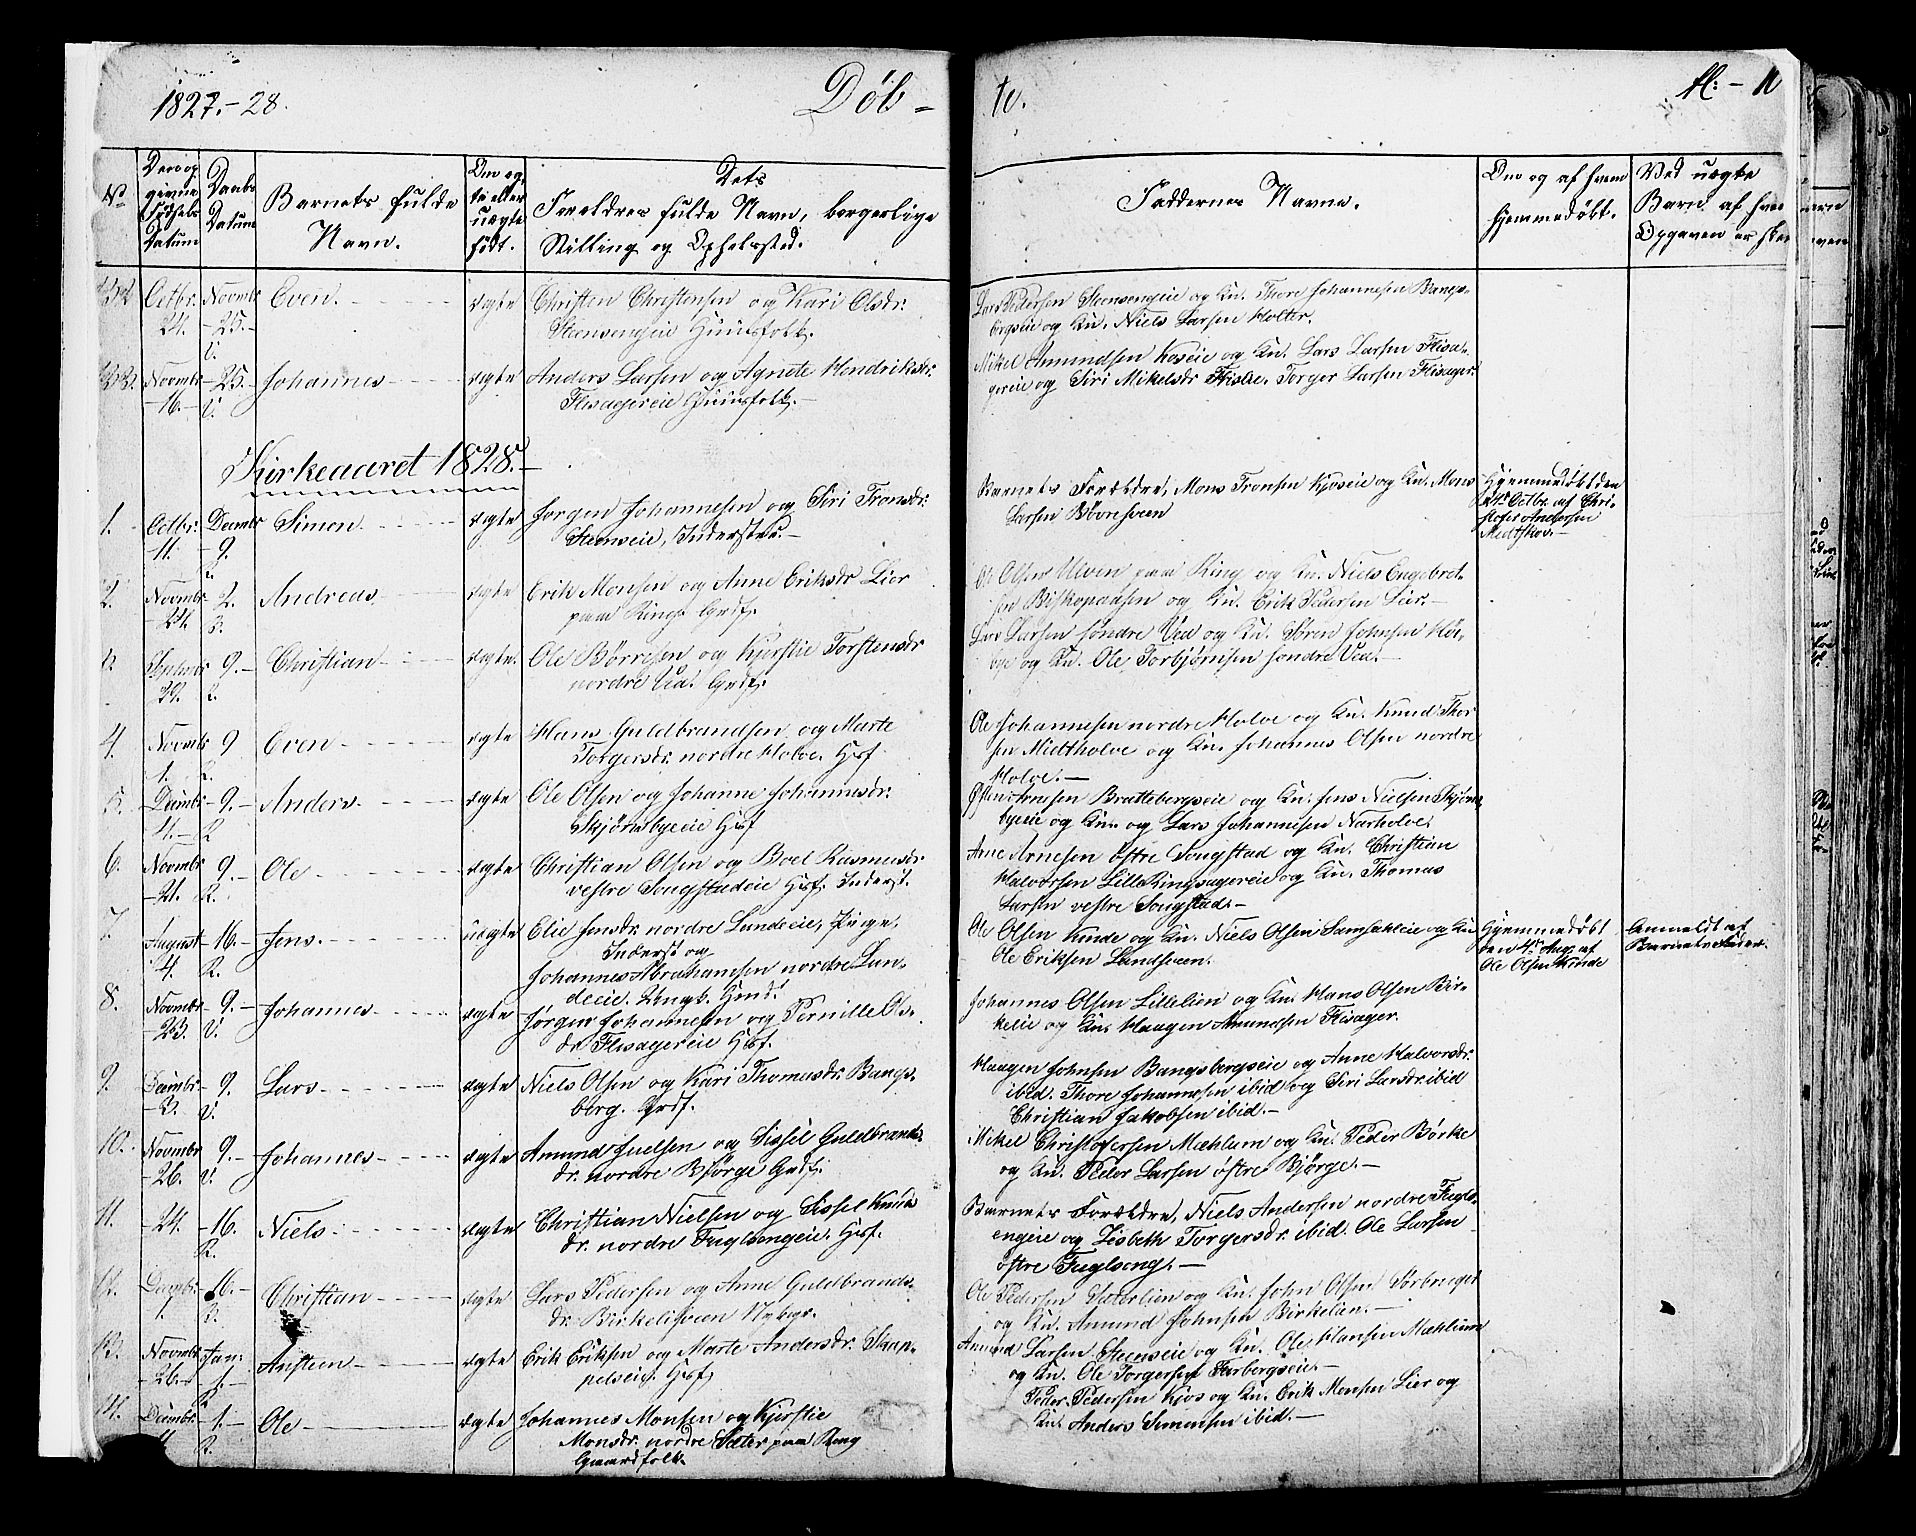 1827.-28.
Døb-
te.
No
Den op
givne
Fødsels
Datum
Daabs
Datum
Barnets fulde
Navn.
Om eg
te eller
uægte
født.
Dets
Forældres fulde Navn, borgerlige
Stilling og Opholssted.
Faddernes Navne.
Om og af hvem
hjemmedøbt.
Ved uægte
Barn af hvem
Opgaven er skeet
Octbr. 24.
Novmbr -25.- V.
Even.
ægte
Christen Christensen og Kari Olsdr.
Steensengeie Huusfolk.
Lars Pedersen Steensengeie og Kn. Thore Johannesen Bangs-
bergseie og Kn. Niels Larsen Holter.
Novmbr -16.-
-25.- V.
Johannes
ægte
Anders Larsen og Agnete Hendriksdr.
Flisagereie Huusfolk.-
Mikel Amundsen Koseie og Kn. Lars Larsen Flisa-
gereie og Siri Mikelsdr Torger Larsen Flisager.
Kirkeaaret 1828.-
1.
Octbr. 11.
Decmbr -9. R.
Simen
ægte
Jørgen Johannesen og Siri Tronsdr.
Steenseie, Inderster.-
Barnets Forældre, Mons Tronsen Kjoseie og Kn. Mons
Larsen Bøvresveen
Hjemmedøbt den
Octbr. af Chri-
stofer Andersen
Midtskov.-
2.
Novmbr -24.
2. B.
Andreas
ægte
Erik Monsen og Anne Eriksdr Lier
paa Ring. Grdf.
Ole Olsen Ulven paa Ring og Kn. Niels Engebret-
sen Biskopaasen og Kn. Erik Pedersen Lier.-
9.- R.
Christian
ægte.
Ole Børresen og Kjerstie Torstensdr
nordre Ved. Grdf.
Lars Larsen søndre Ved og Kn. Søren Johnsen Hør-
bye og Kn. Ole Torbjørnsen søndre Ved.-
4.
Novmbr 1.
9 R.
Even
ægte
Hans Guldbrandsen og Marte
Torgersdr. nordre Holve. Hsf
Ole Johannesen nordre Holve og Kn. Knud Thor
sen Midtholve og Kn. Johannes Olsen nordre
Holve.-
5.
Decmbr 4.-
-9.- R.
Anders.
ægte
Ole Olsen og Johanne Johannesdr.
Skjørnsbyeeie Hsf
Østen Arnesen Brattebergseie og Kn. Jens Nielsen Skjørns-
byeeie og Kn. og Lars Johannesen Narholve.
6.
Novmbr -21.
9.- R.
Ole
ægte
Christian Olsen og Boel Rasmusdr
vestre Songstadeie Hsf. Inderst.
Arne Arnesen østre Songstad og Kn. Christian
Halvorsen Lille Ringsagereie og Kn. Thomas
Larsen vestre Songstad.-
7.
August 4.
-16.- R.
Jens.
uægte
Elie Jensdr. nordre Lundeeie, Pige,
Inderst og
Johannes Abrahamsen nordre Lun-
deeie. Ungk. Hmd.
Ole Olsen Kinde og Kn. Niels Olsen Samsahleie og Kn
Ole Eriksen Lundsveen.
Hjemmedøbt
den 4de Aug. af
Ole Olsen Kinde
Anmeldt af
Barnets Fader.
8.
Novmbr -23.
-9.- V.
Johannes
ægte
Jørgen Johannesen og Pernille Ols-
dr. Flisagereie Hsf.
Johannes Olsen Lillelien og Kn. Hans Olsen Bir-
kelie og Kn. Haagen Amundsen Flisager.
9.
Decmbr. -3.
9. V.
Lars
ægte
Niels Olsen og Kari Thomasdr. Bangs-
berg. Grdf.
Haagen Johnsen Bangsbergseie og Anne Halvorsdr.
ibid. Thore Johannesen ibid og Siri Larsdr. ibid
Christian Jakobsen ibid.-
10.
Novmbr -26.
9.- V.
Johannes
ægte
Amund Juelsen og Sissel Guldbrands-
dr. nordre Bjørge Grdf.
Mikel Christofersen Mæhlum og Kn. Peder Børke
og Kn. Peder Larsen østre Bjørge.-
11.
-24.
-16. R.
Niels
ægte
Christian Nielsen og Sissel Knuds
dr. nordre Fuglsengeie. Hsf.
Barnets Forældre, Niels Andersen nordre Fugls-
engeie og Lisbeth Torgersdr. ibid. Ole Larsen
østre Fuglseng.-
12.
Decmbr. 1.
16.- B.
Christian
ægte
Lars Pedersen og Anne Guldbrands-
dr. Birkelisveen Nybgr.
Ole Pedersen Sæterlien og Kn. John Olsen
og Kn. Amund Johnsen Birkelien.-
13.
Novmbr -26.-
Jan: -1.- R
Anstein
ægte
Erik Eriksen og Marte Andersdr. Skap-
pelseie. Hsf.
Amund Larsen Steenseie og Kn. Ole Hansen Mæhlum
og Kn. Ole Torgersen Farbergseie.-
14.
Decmbr
-1.- R.
Ole
ægte
Johannes Monsen og Kjerstie
Monsdr. nordre Sæter paa Ring
Gaardfolk.
Peder Pedersen Kjos og Kn. Erik Monsen Lier og
Kn. Anders Simensen ibid.-